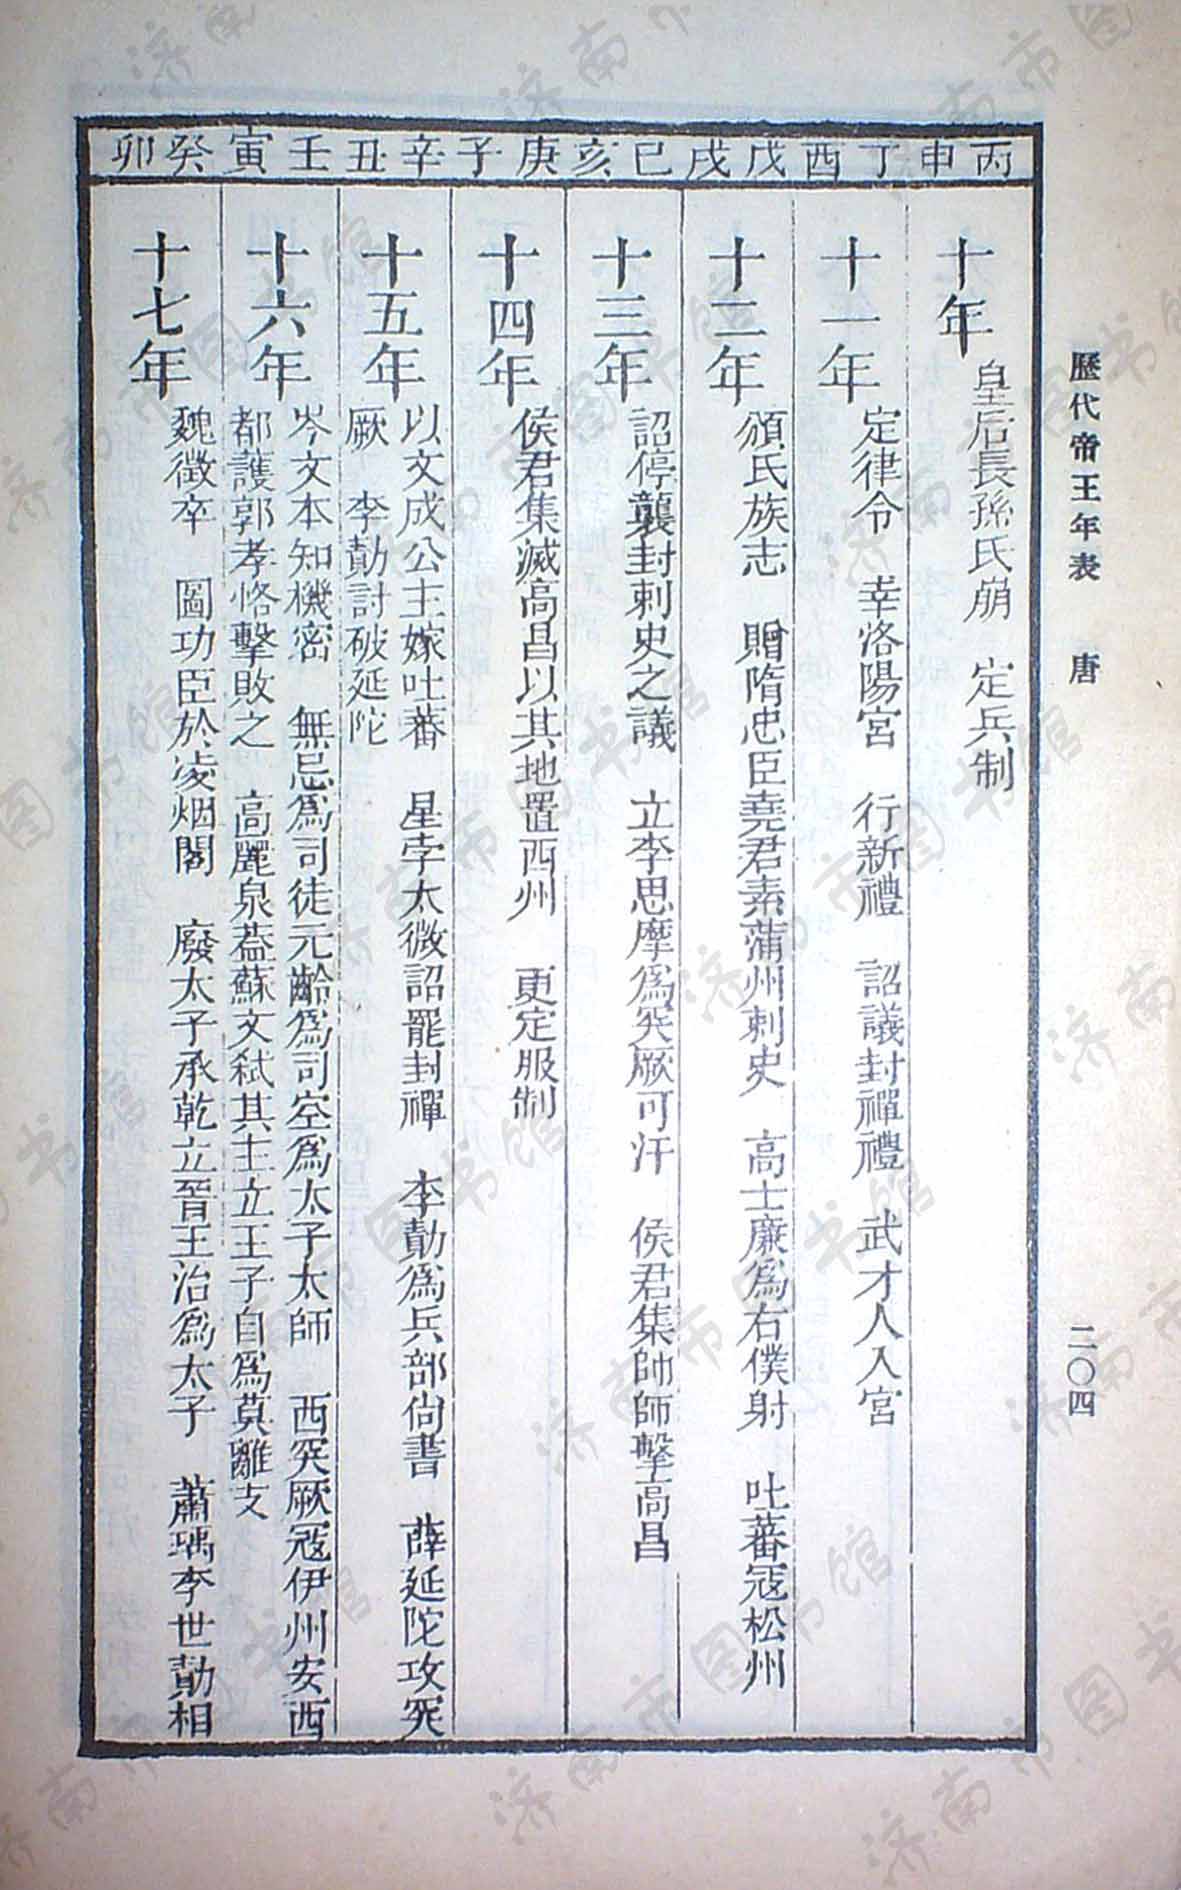 歷代帝王年表 唐 二〇四
丙申 丁酉 戊戌 己亥 庚子 辛丑 壬寅 癸卯
十年 皇后長孫氏崩 定兵制
十一年 定律令 幸洛陽宮 行新禮 詔議封禪禮 武才人入宮
十二年 頒氏族志 贈隋忠臣堯君素蒲州刺史 高士廉爲右僕射 吐蕃寇松州
十三年 詔停襲封刺史之議 立李思摩爲突厥可汗 侯君集帥師擊高昌
十四年 侯君集滅高昌以其地置西州 更定服制
十五年 以文成公主嫁吐蕃 星孛太微詔罷封禪 李勣爲兵部尚書 薛延陀攻突
厥 李勣討破延陀
十六年 岑文本知機密 無忌爲司徒元齡爲司空爲太子太師 西突厥寇伊州安西
都護郭孝恪擊敗之 高麗泉蓋蘇文弒其主立王子自爲莫離支
十七年 魏徵卒 圖功臣於凌烟閣 廢太子承乾立晉王治爲太子 蕭瑀李世勣相
济南市图书馆